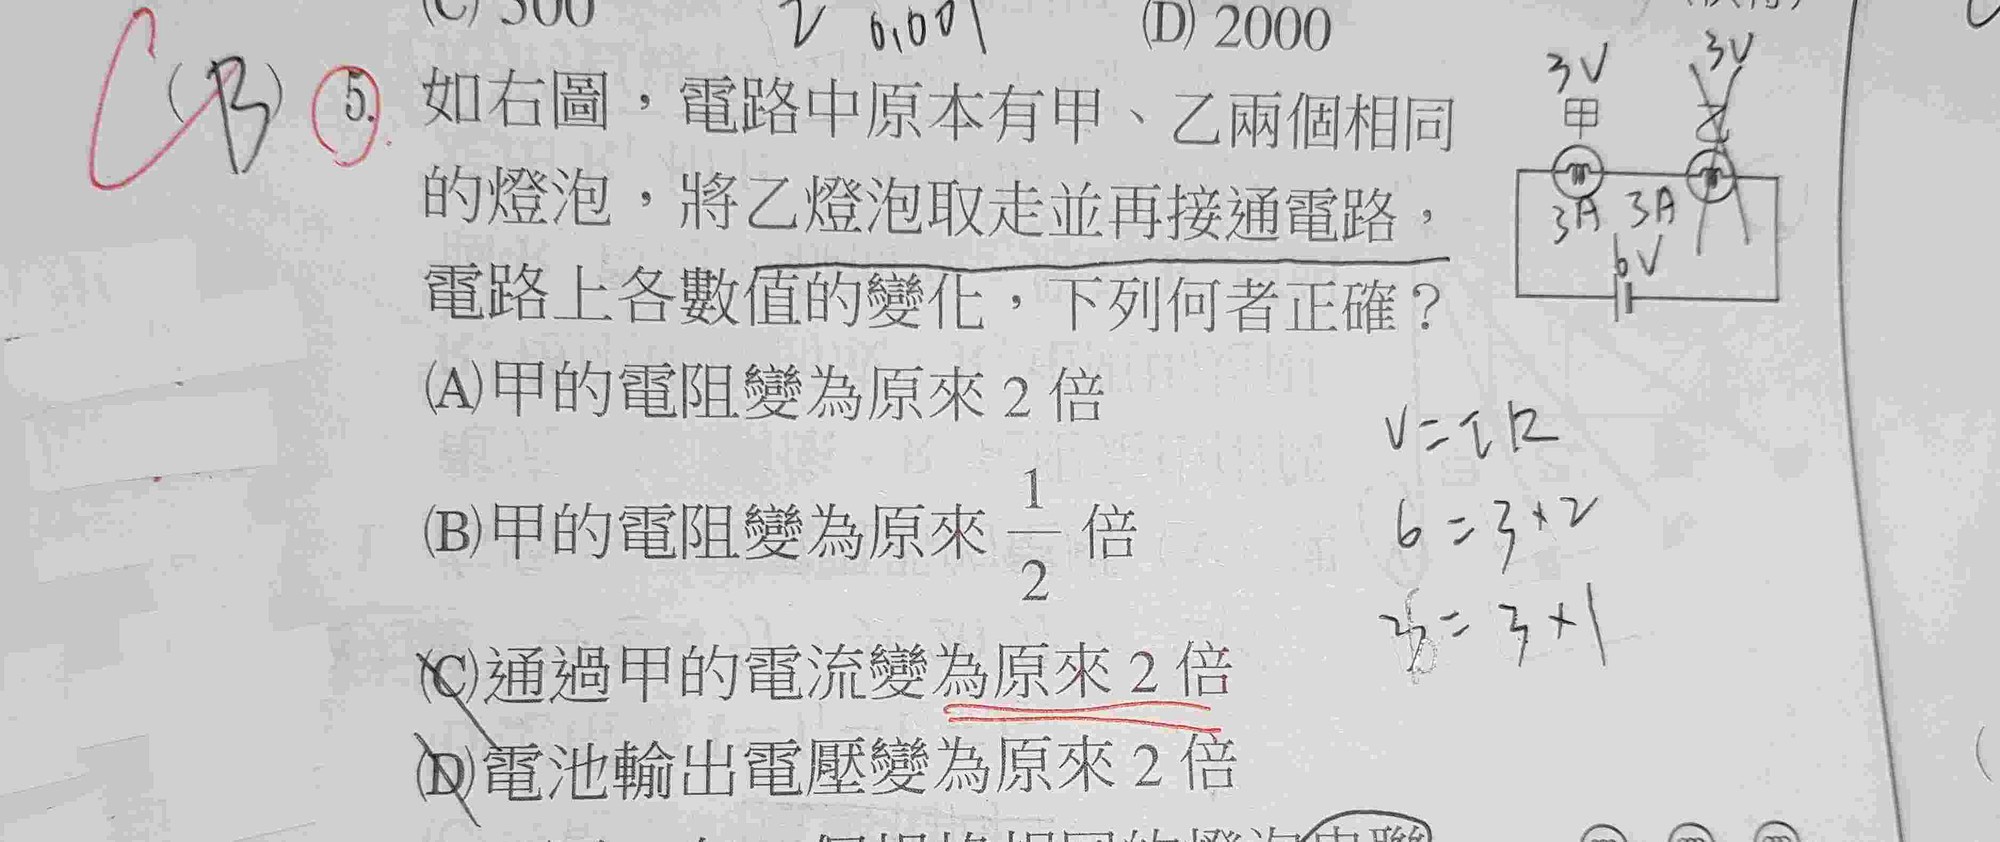 (C) 500
2 0.001
(D) 2000
C
(B) 5. 如右圖，電路中原本有甲、乙兩個相同
的燈泡，將乙燈泡取走並再接通電路，
電路上各數值的變化，下列何者正確？
(A)甲的電阻變為原來 2 倍
(B)甲的電阻變為原來 1/2 倍
(C)通過甲的電流變為原來 2 倍
(D)電池輸出電壓變為原來 2 倍
3V 3V
甲 乙
3A 3A
6V
V=IR
6=3×2
=3×1